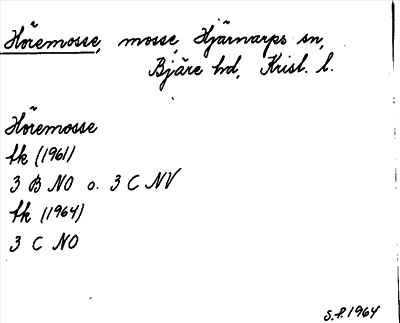 Höremosse, mosse, Hjärnarps sn,
Bjäre hd, Krist. l.
Höremosse
tk (1961)
3 B NO o. 3 C NV
tk (1964)
3 C NO
S.F. 1964